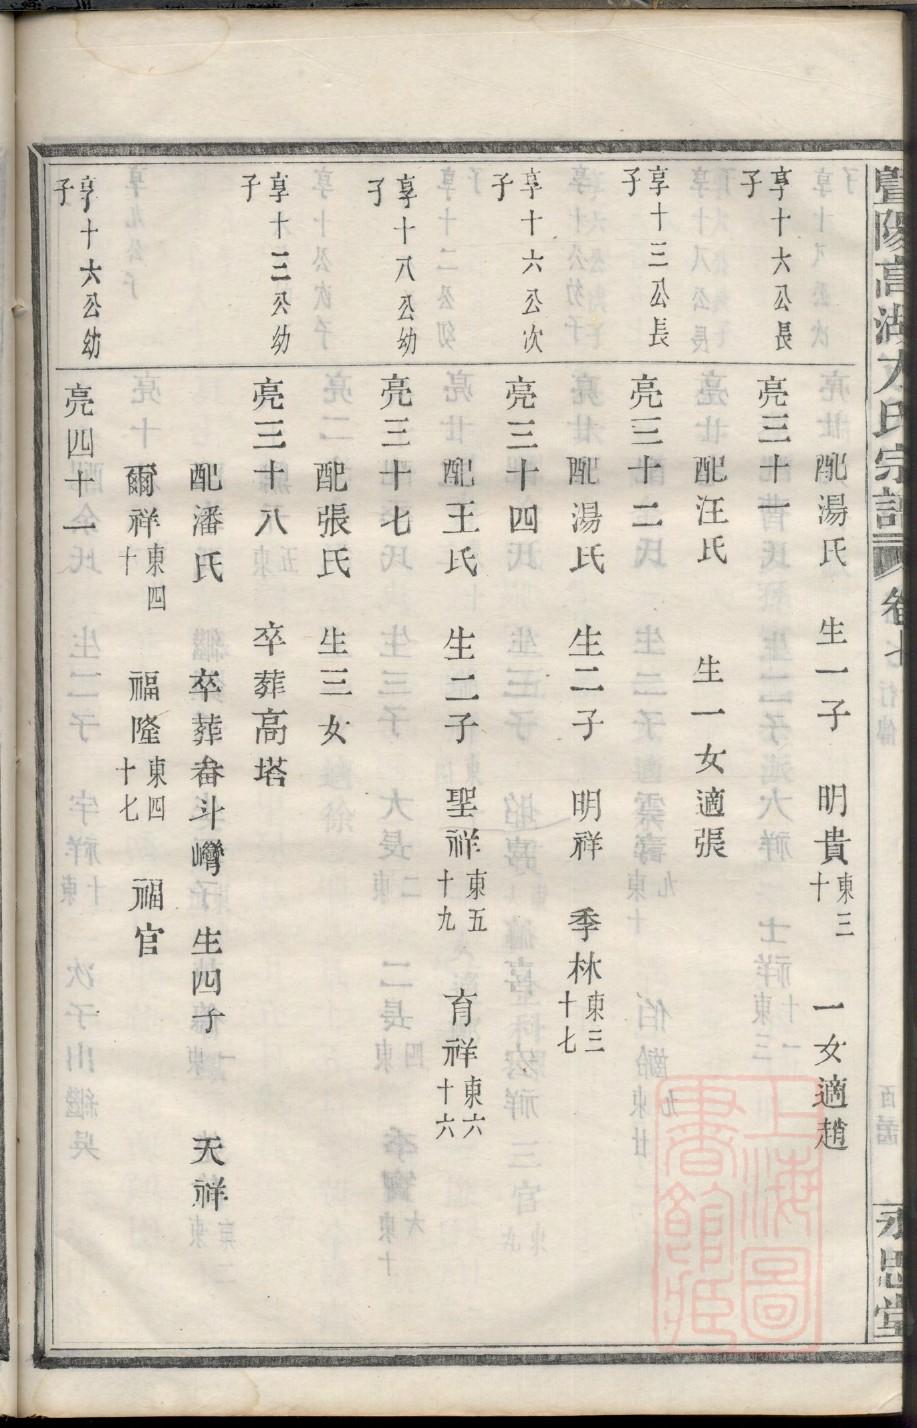 暨陽高湖方氏宗譜 卷七 行傳 永思堂
配湯氏 生一子 明貴東三十 一女適趙
享十六公長子
亮三十一
配汪氏 生一女適張
享十三公長子
亮三十二
配湯氏 生二子 明祥 季林東三十七
享十六公次子
亮三十四
配王氏 生二子 聖祥東五十九 育祥東六十六
享十八公幼子
亮三十七
配張氏 生三女
享十三公幼子
亮三十八 卒葬高塔
配潘氏 卒葬畚斗灣子 生四子 天祥
爾祥東四十 福隆東四十七 福官
享十六公幼子
亮四十一
上海圖書館藏